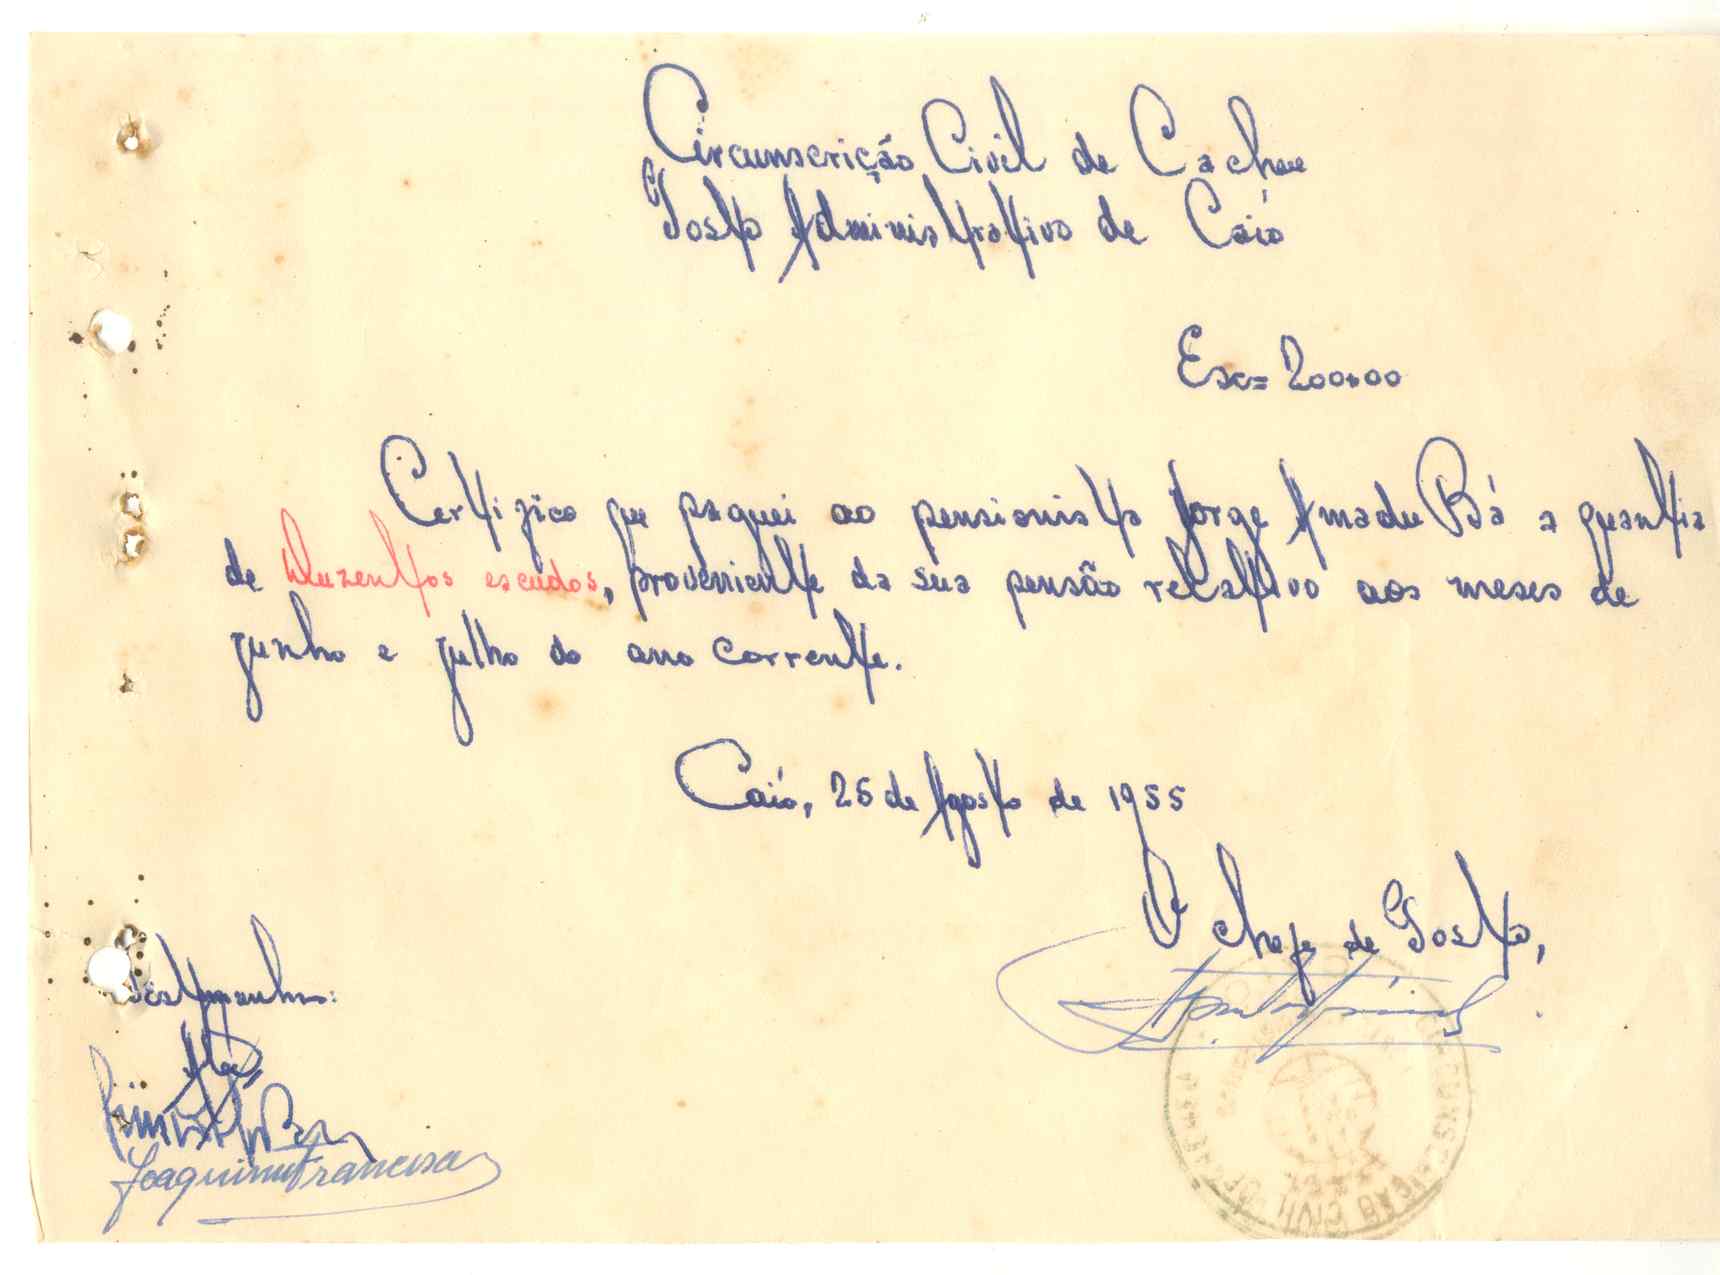 Circunscrição Civil de Cacheu
Posto Administrativo de Caió
Esc= 200$00
Certifico que paguei ao pensionista Jorge Amadu Bá a quantia
de Duzentos escudos, proveniente da sua pensão relativo aos meses de
junho e julho do ano corrente.
Caió, 25 de Agosto de 1955
O chefe de Posto,
Testemunhas:
Joaquim Francisco
CIRCUNSCRIÇÃO CIVIL